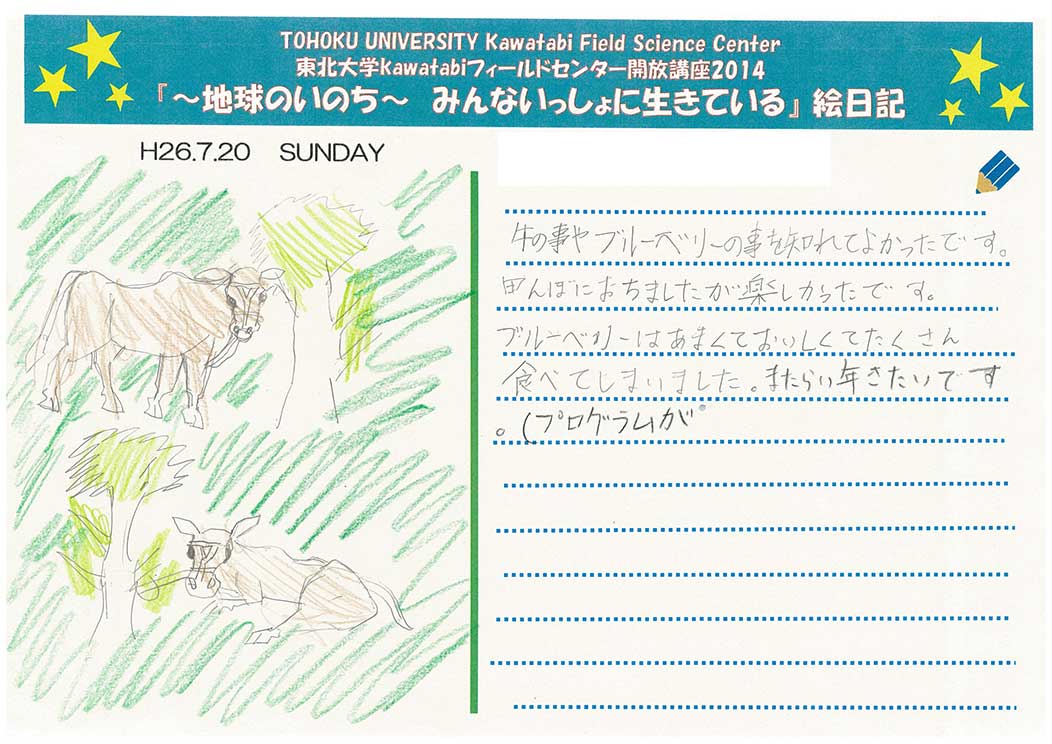 TOHOKU UNIVERSITY Kawatabi Field Science Center
東北大学Kawatabiフィールドセンター開放講座2014
『~地球のいのち~ みんないっしょに生きている』絵日記
H26.7.20 SUNDAY
牛の事やブルーベリーの事を知れてよかったです。
田んぼにおちましたが楽しかったです。
ブルーベリーはあまくておいしくてたくさん
食べてしまいました。またらい年きたいです
。(プログラムが